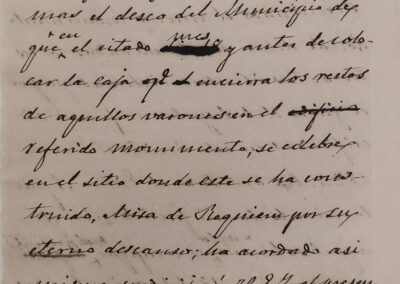 mas el deseo del Municipio de
que en el citado mes y antes de colo-
car la caja qe. encierra los restos
de aquellos varones en el edificio
referido monumento, se celebre
en el sitio donde este se ha cons-
truido, Misa de Requiem por su
eterno descanso; ha acordado asi